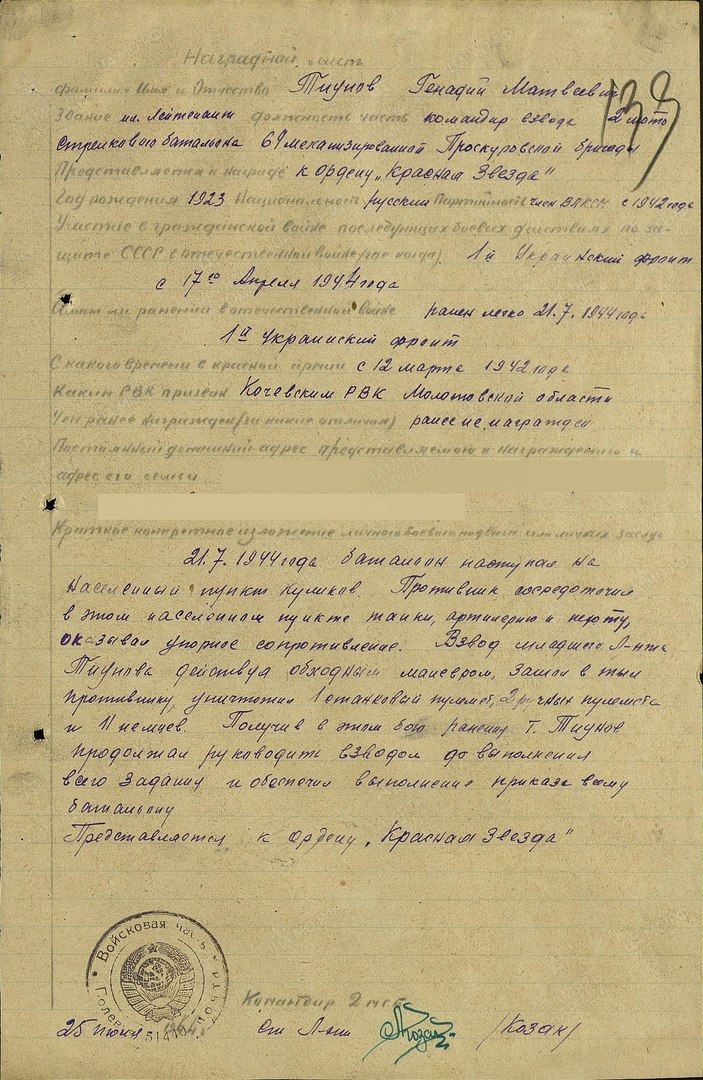 Наградной лист
фамилия Имя и Отчество Тиунов Генадий Матвеевич
133
Звание мл. Лейтенант должность часть командир взвода 2 мото
стрелкового батальона 61 механизированной Проскуровской бригады
Представляется к награде к ордену „Красная Звезда"
Год рождения 1923 Национальност русский Партийност член ВЛКСМ с 1942 года
Участие в гражданской войне последующих боевых действиях по за-
щите СССР в отечественной войне (где когда) 1й Украинский фронт
с 17го Апреля 1944 года
Имат ли ранения в отечественной войне ранен легко 21.7.1944 года
1й Украинский фронт
С какого времени в красной армии с 12 марта 1942 года
Каким РВК призван Кочевским РВК Молотовской области
Чем ранее награжден (за какие отличия) ранее не награжден
Постоянный домашний адрес представляемого к награждению и
адрес его семьи
Краткое конкретное изложение личного боевого подвига или личных заслуг
21.7.1944 года батальон наступал на
населенный пункт Куликов. Противник сосредоточил
в этом населенном пункте танки, артилерию и пехоту,
оказывал упорное сопротивление. Взвод младшего Л-нта
Тиунова действуя обходным маневром, зашол в тыл
противнику, уничтожил 1 станковый пулемет, 2 ручных пулемета
и 11 немцев. Получив в этом бою ранения т. Тиунов
продолжал руководить взводом до выполнения
всего задания и обеспечил выполнение приказа всему
батальону
Представляется к ордену „Красная Звезда"
Войсковая часть
Полевая почта
51410
Командир 2 мсб
25 июля 1944 г Ст Л-нт /Козак/